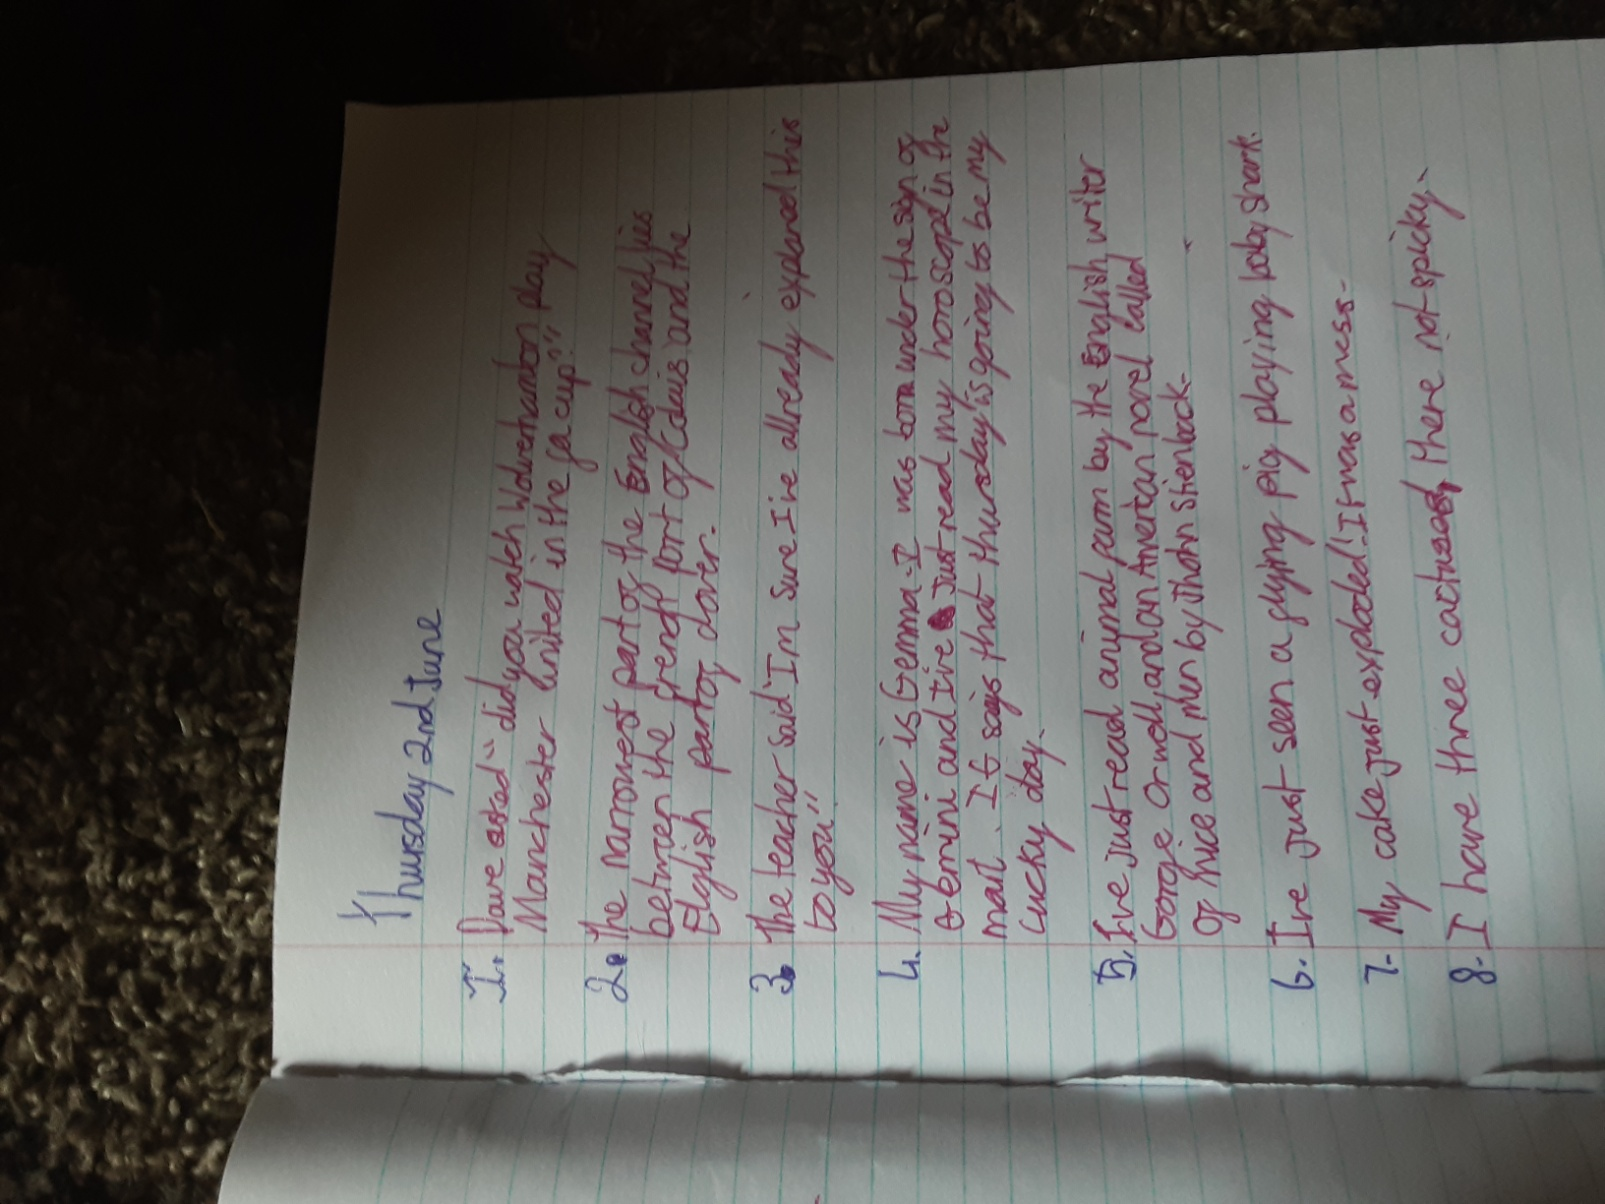 Thursday 2nd June
1. Dave asked " did you watch Wolverhamton play
Manchester united in the fa cup?"
2. The narrowest part of the English channel lies
between the french port of Calais and the
English part of dover.
3. The teacher said "I'm sure I've allready explained this
to you"
4. My name is Gemma. I was born under the sign of
Gemini and I've Just read my horoscope in the
mail. It says that thursday is going to be my
Lucky day.
5. I've just read animal farm by the English writer
George Orwell, and an American novel called
Of mice and men by Jhohn Stienback.
6. I've just seen a flying pig playing baby shark.
7. My cake just exploded! It was a mess.
8. I have three cactuses, there not spicky.